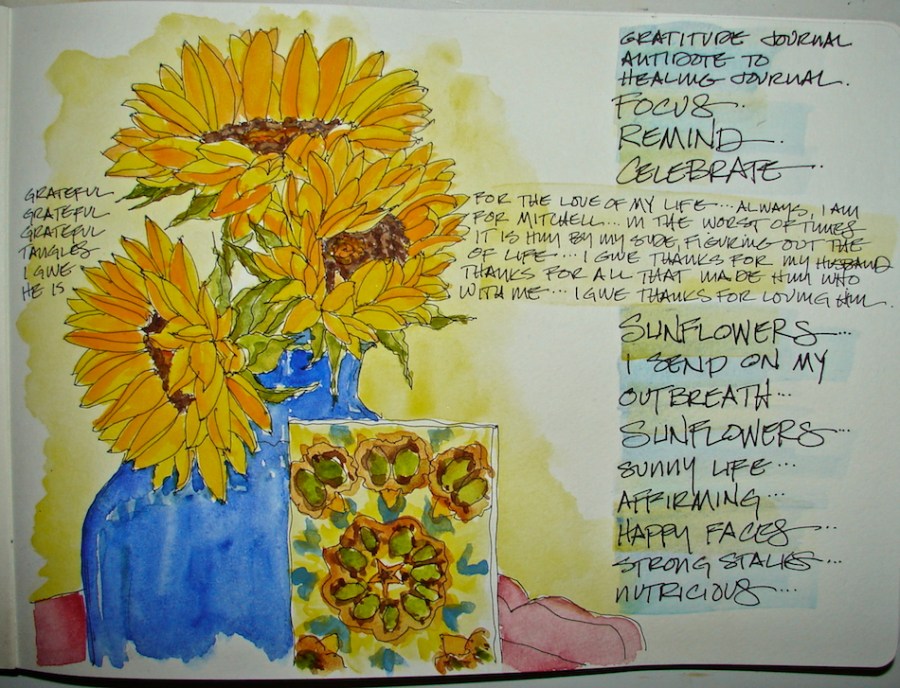 GRATITUDE JOURNAL
ANTIDOTE TO
HEALING JOURNAL.
FOCUS.
REMIND.
CELEBRATE..
GRATEFUL FOR THE LOVE OF MY LIFE... ALWAYS, I AM
GRATEFUL FOR MITCHELL... IN THE WORST OF TIMES
GRATEFUL IT IS HIM BY MY SIDE, FIGURING OUT THE
TANGLES OF LIFE... I GIVE THANKS FOR MY HUSBAND
I GIVE THANKS FOR ALL THAT MADE HIM WHO
HE IS WITH ME... I GIVE THANKS FOR LOVING HIM.
SUNFLOWERS...
I SEND ON MY
OUTBREATH...
SUNFLOWERS...
SUNNY LIFE...
AFFIRMING...
HAPPY FACES...
STRONG STALKS...
NUTRICIOUS...